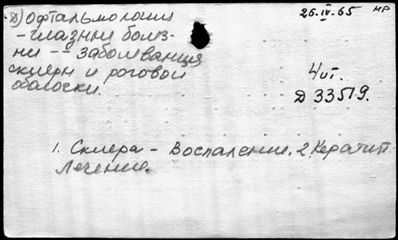 Д) офтальмологии
26.IV.65 МР
- глазные болез-
ни -- заболевания
склеры и роговой
оболочки.
4 ит.
Д 33519.
1. Склера - Воспаление. 2. Кератит
Лечение.